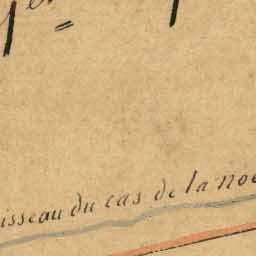 isseau du cas de la noe